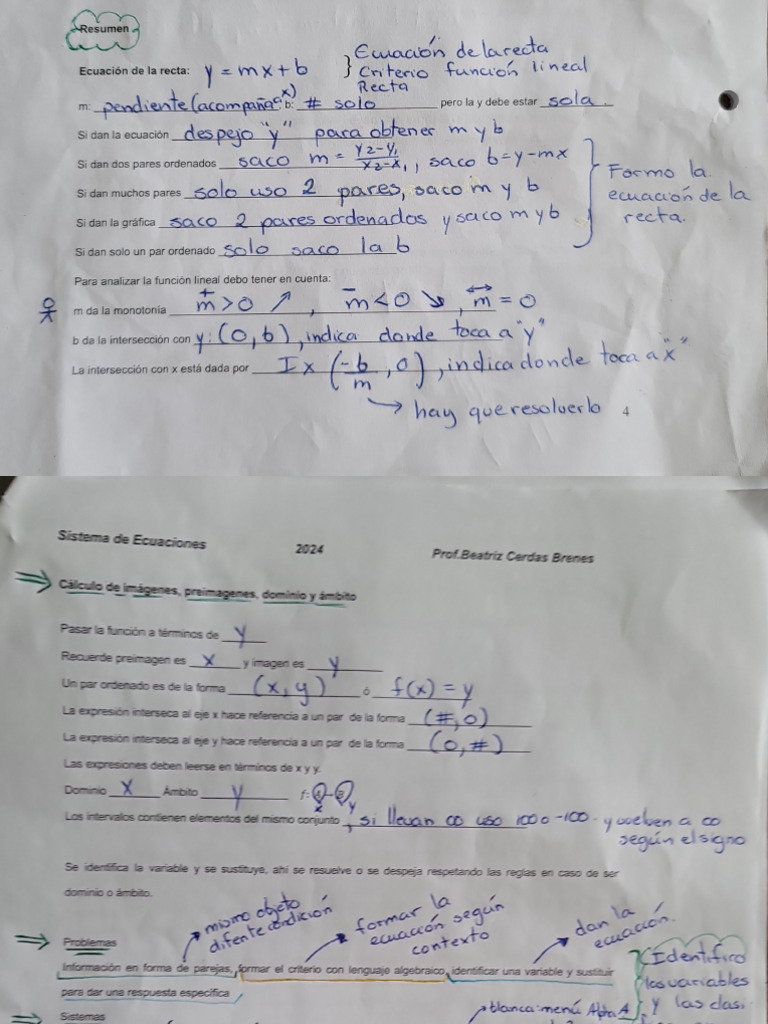 Resumen
Ecuación de la recta: y = mx + b } Ecuación de la recta
Criterio función lineal
Recta
m: pendiente (acompaña a x) b: # solo pero la y debe estar sola.
Si dan la ecuación despejo "y" para obtener m y b
Si dan dos pares ordenados saco m = y2-y1/x2-x1, saco b=y-mx
Si dan muchos pares solo uso 2 pares, saco m y b
Si dan la gráfica saco 2 pares ordenados y saco m y b
} Formo la ecuación de la recta.
Si dan solo un par ordenado solo saco la b
Para analizar la función lineal debo tener en cuenta:
m da la monotonía m > 0 ↗, m < 0 ↘, m = 0
b da la intersección con y: (0, b), indica donde toca a "y"
La intersección con x está dada por Ix (-b/m, 0), indica donde toca a "x"
→ hay que resolverlo 4
Sistema de Ecuaciones 2024 Prof.Beatriz Cerdas Brenes
⇒ Cálculo de imágenes, preimagenes, dominio y ámbito
Pasar la función a términos de y
Recuerde preimagen es x y imagen es y
Un par ordenado es de la forma (x, y) ó f(x) = y
La expresión interseca al eje x hace referencia a un par de la forma (#, 0)
La expresión interseca al eje y hace referencia a un par de la forma (0, #)
Las expresiones deben leerse en términos de x y y.
Dominio x Ámbito y f: x y
Los intervalos contienen elementos del mismo conjunto, si llevan ∞ uso 100 o -100 y vuelven a ∞
según el signo
Se identifica la variable y se sustituye, ahí se resuelve o se despeja respetando las reglas en caso de ser
dominio o ámbito.
mismo objeto
difente condición
formar la
ecuación según
contexto
dan la
ecuación.
⇒ Problemas
Información en forma de parejas, formar el criterio con lenguaje algebraico, identificar una variable y sustituir
para dar una respuesta específica
Identifico
las variables
y las clasi
⇒ Sistemas
blanca: menú Alpha A